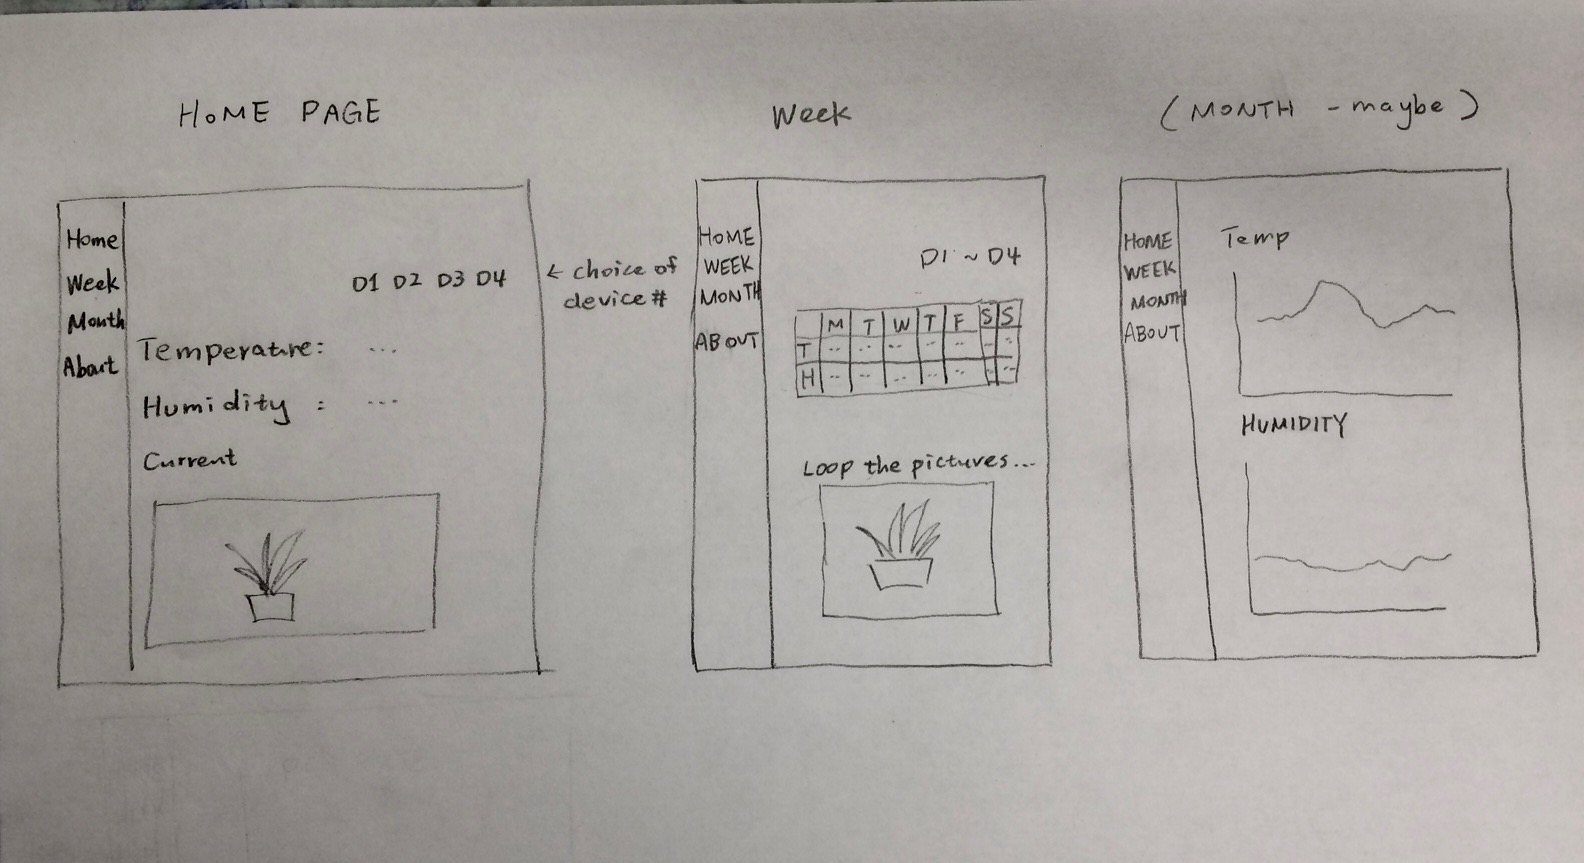 HOME PAGE
Home
Week
Month
About
D1 D2 D3 D4
← choice of
device #
Temperature: ...
Humidity : ...
Current
Week
HOME
WEEK
MONTH
ABOUT
D1 ~ D4
M T W T F S S
T -- -- -- -- -- -- --
H -- -- -- -- -- -- --
Loop the pictures...
(MONTH - maybe)
HOME
WEEK
MONTH
ABOUT
Temp
HUMIDITY